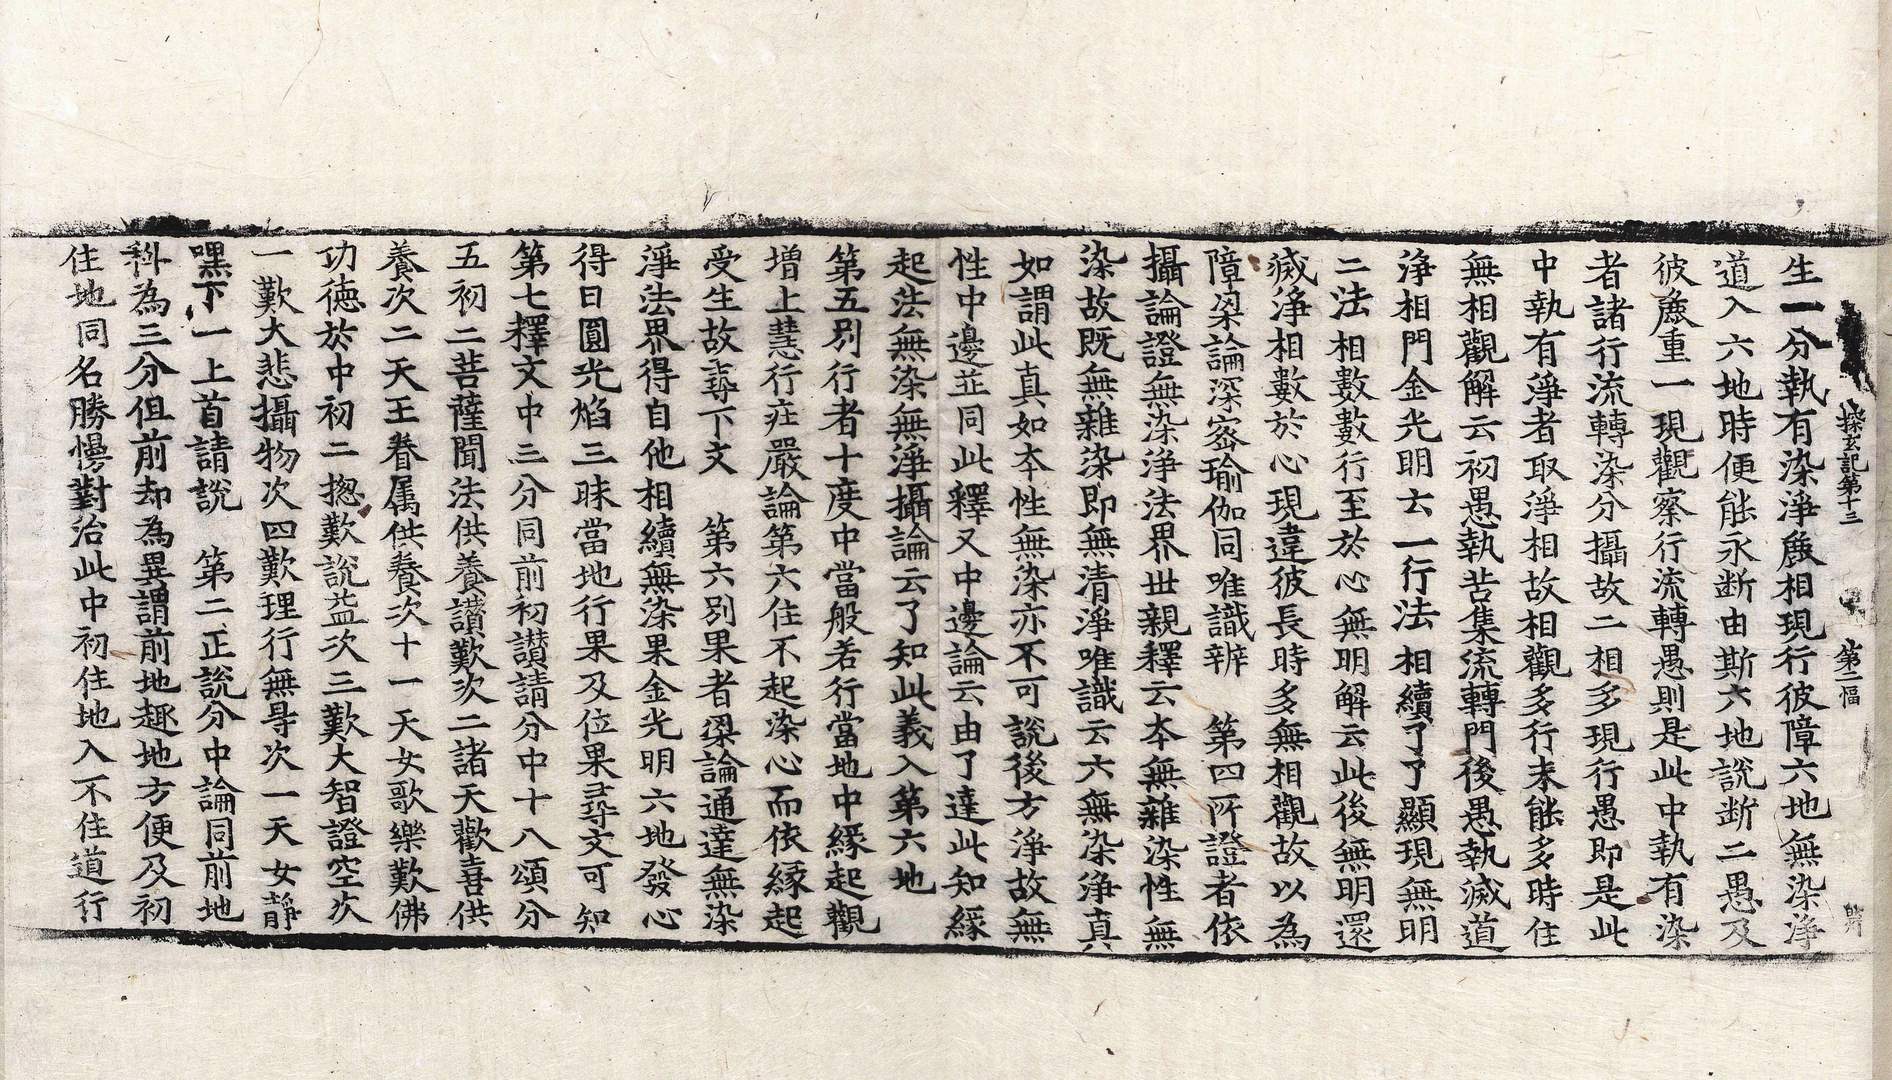 探玄記第十三 第二幅
生一分執有染淨麁相現行彼障六地無染淨
道入六地時便能永断由斯六地說断二愚及
彼麁重一現觀察行流轉愚則是此中執有染
者諸行流轉染分攝故二相多現行愚即是此
中執有淨者取淨相故相觀多行未能多時住
無相觀解云初愚執苦集流轉門後愚執滅道
淨相門金光明云一行法相續了了顯現無明
二法相數數行至於心無明解云此後無明還
滅淨相數於心現違彼長時多無相觀故以為
障梁論深密瑜伽同唯識辨 第四所證者依
攝論證無染淨法界世親釋云本無雜染性無
染故既無雜染即無清淨唯識云六無染淨真
如謂此真如本性無染亦不可說後方淨故無
性中邊並同此釋又中邊論云由了達此知緣
起法無染無淨攝論云了知此義入第六地
第五別行者十度中當般若行當地中緣起觀
増上慧行莊嚴論第六住不起染心而依緣起
受生故尋下文 第六別果者梁論通達無染
淨法界得自他相續無染果金光明六地發心
得日圓光焰三昧當地行果及位果尋文可知
第七釋文中三分同前初讃請分中十八頌分
五初二菩薩聞法供養讃歎次二諸天歡喜供
養次二天王眷属供養次十一天女歌樂歎佛
功徳於中初二揔歎說益次三歎大智證空次
一歎大悲攝物次四歎理行無㝵次一天女靜
嘿下一上首請說 第二正說分中論同前地
科為三分但前却為異謂前地趣地方便及初
住地同名勝慢對治此中初住地入不住道行